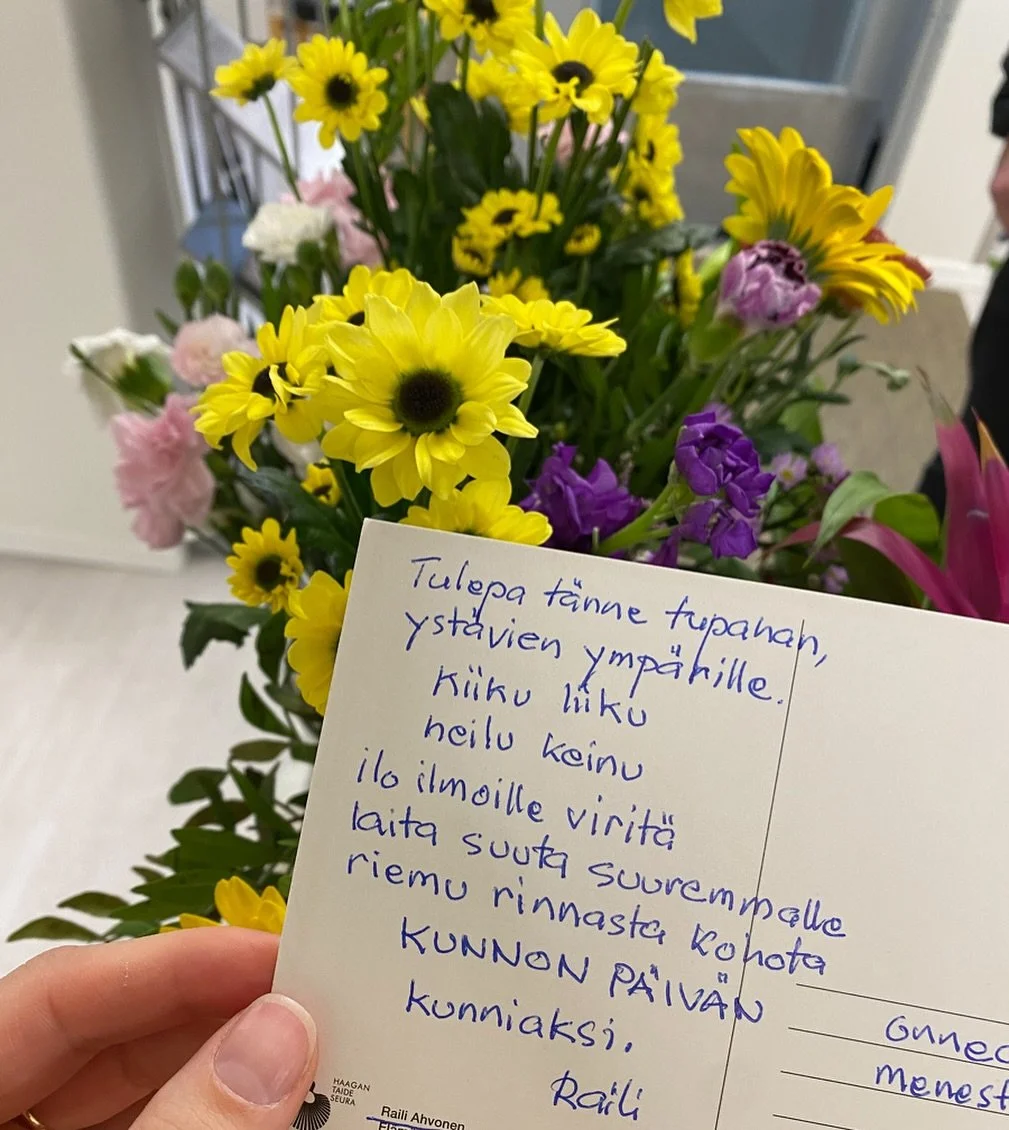 Tulepa tänne tupahan,
ystävien ympärille.
Kiiku liiku
heilu keinu
ilo ilmoille viritä
laita suuta suuremmalle
riemu rinnasta kohota
KUNNON PÄIVÄN
kunniaksi.
Raili
onnec
menest
HAAGAN
TAIDE
SEURA
Raili Ahvonen